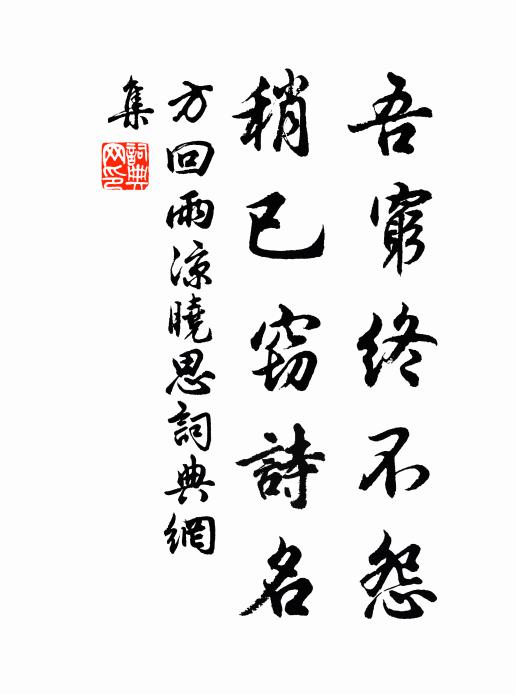 吾窮終不怨
稍已窃詩名
方回雨涼曉思詞典網
集
詞典
网印